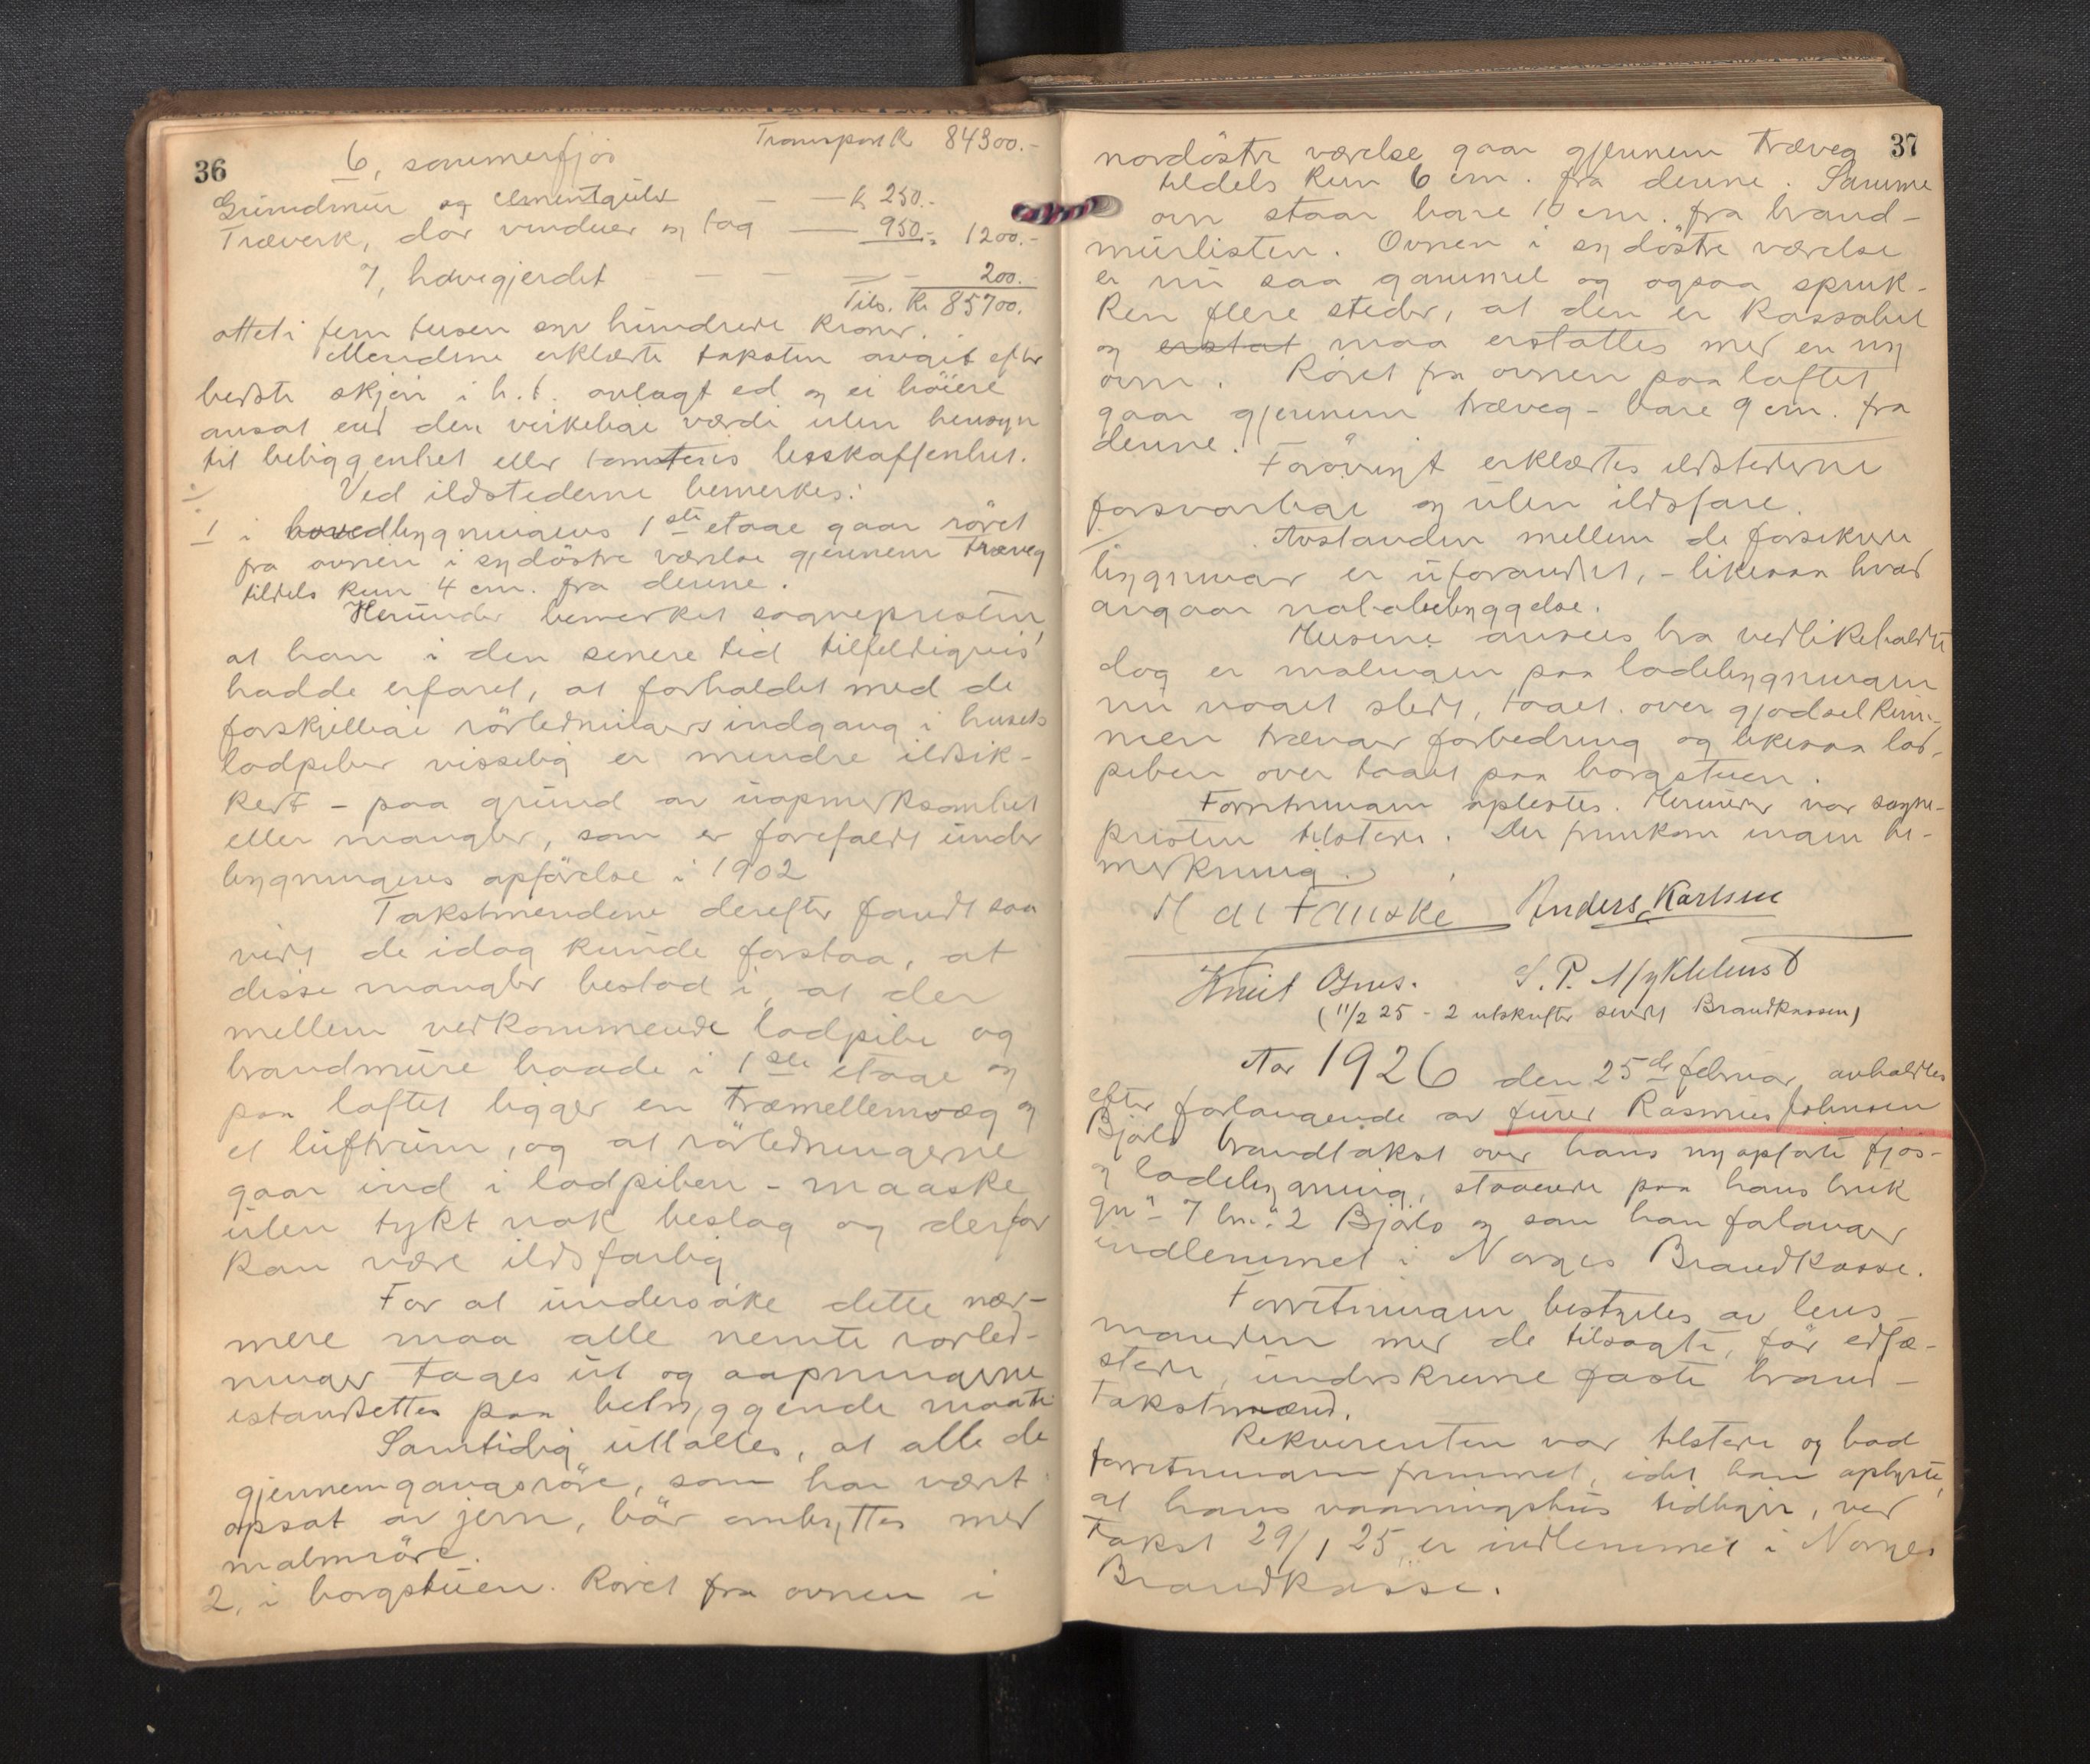 36
Transport Kr 84300.-
6, sommerfjös
Grundmur og cementgulv — — k 250.-
Træverk, dör vinduer og tag — 950.- 1200.-
7, havegjerdet — — — — 200.-
Tils. Kr 85700.
otteti fem tusen syv hundrede kroner.
Mendene erklærte taksten avgit efter
bedste skjön i h. t. avlagt ed og ei höiere
ansat end den virkelige værdi uten hensyn
til beliggenhet eller tomtens beskaffenhet.
Ved ildstederne bemerkes:
1 i hovedbygningens 1ste etage gaar röret
fra ovnen i sydöstre værelse gjennem træveg
tildels kun 4 cm. fra denne.
Herunder bemerket sognepresten,
at han i den senere tid tilfeldigvis
hadde erfaret, at forholdet med de
forskjellige rörledningers indgang i husets
lodpiber visselig er mindre ildsik-
kert - paa grund av uopmerksomhet
eller mangler, som er forefaldt under
bygningens opförelse i 1902
Takstmendene derefter fandt saa
vidt de idag kunde forstaa, at
disse mangler bestod i, at der
mellem vedkommende lodpibe og
brandmure baade i 1ste etage og
paa loftet ligger en træmellemvæg og
et luftrum, og at rörledningerne
gaar ind i lodpiben - maaske
uten tykt nok beslag og derfor
kan være ildsfarlig
For at undersöke dette nær-
mere maa alle nemte rörled-
ninger tages ut og aapningerne
istandsettes paa betryggende maate
Samtidig uttaltes, at alle de
gjennemgangsröre, som har vært
opsat av jern, bör ombyttes med
malmröre.
2, i borgstuen. Röret fra ovnen i
37
nordöstre værelse gaar gjennem træveg
tildels kun 6 cm. fra denne. Samme
ovn staar bare 10 cm. fra brand-
murlisten. Ovnen i sydöstre værelse
er nu saa gammel og ogsaa spruk-
ken flere steder, at den er kassabel
og erstat maa erstattes med en ny
ovn. Röret fra ovnen paa loftet
gaar gjennem træveg - bare 9 cm. fra
denne.
Forövrigt erklærtes ildstederne
forsvarlige og uten ildsfare.
Avstanden mellem de forsikrede
bygninger er uforandret, - likesaa hvad
angaar nabobebyggelse.
Husene ansees bra vedlikeholdt
dog er malingen paa ladebygningen
nu noget slidt, taget over gjödselkum-
men trænger forbedring og likesaa lod-
piben over taget paa borgstuen.
Forretningen oplestes. Herunder var sogne-
presten tilstede. Der fremkom ingen be-
merkning.
Anders Karlsen
Knut S. P. Myklebust
(11/2 25 - 2 utskrifter sendt Brandkassen)
Aar 1926 den 25de februar avholdtes
efter forlangende av furer Rasmus Johnsen
Bjölo brandtakst over hans nyopförte fjös-
og ladebygning, staaende paa hans bruk
gn. 7 bn. 2 Bjölo og som han forlanger
indlemmet i Norges Brandkasse.
Forretningen bestyres av lens-
manden med de tilsagte, för edfæ-
stede, underskrevne faste brand-
takstmænd.
Rekvirenten var tilstede og bad
forretningen fremmet, idet han oplyste,
at hans vaaningshus tidligere, ved
takst 29/1 25 er indlemmet i Norges
Brandkasse.